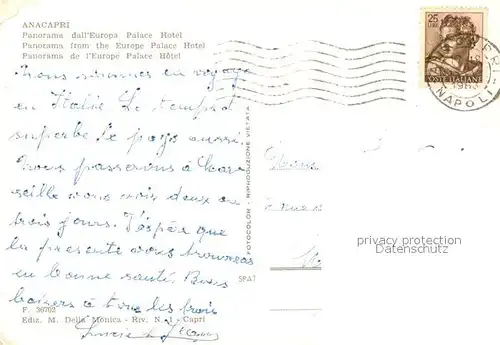 ANACAPRI
Panorama dall'Europa Palace Hotel
Panorama from the Europe Palace Hotel
Panorama de l'Europe Palace Hôtel
Nous sommes en voyage
en Italie Le temps est
superbe le pays aussi.
Nous passerons à Mar
seille vous voir deux ou
trois jours. J'espère que
la présente vous trouvera
en bonne santé. Bons
baisers à tous les trois
Lucie et
F. 36702
Ediz. M. Della Monica - Riv. N. 1 - Capri
FOTOCOLOR - RIPRODUZIONE VIETATA
SPAT
25
LIRE
POSTE ITALIANE
NAPOLI
privacy protection
www.oldthing.de